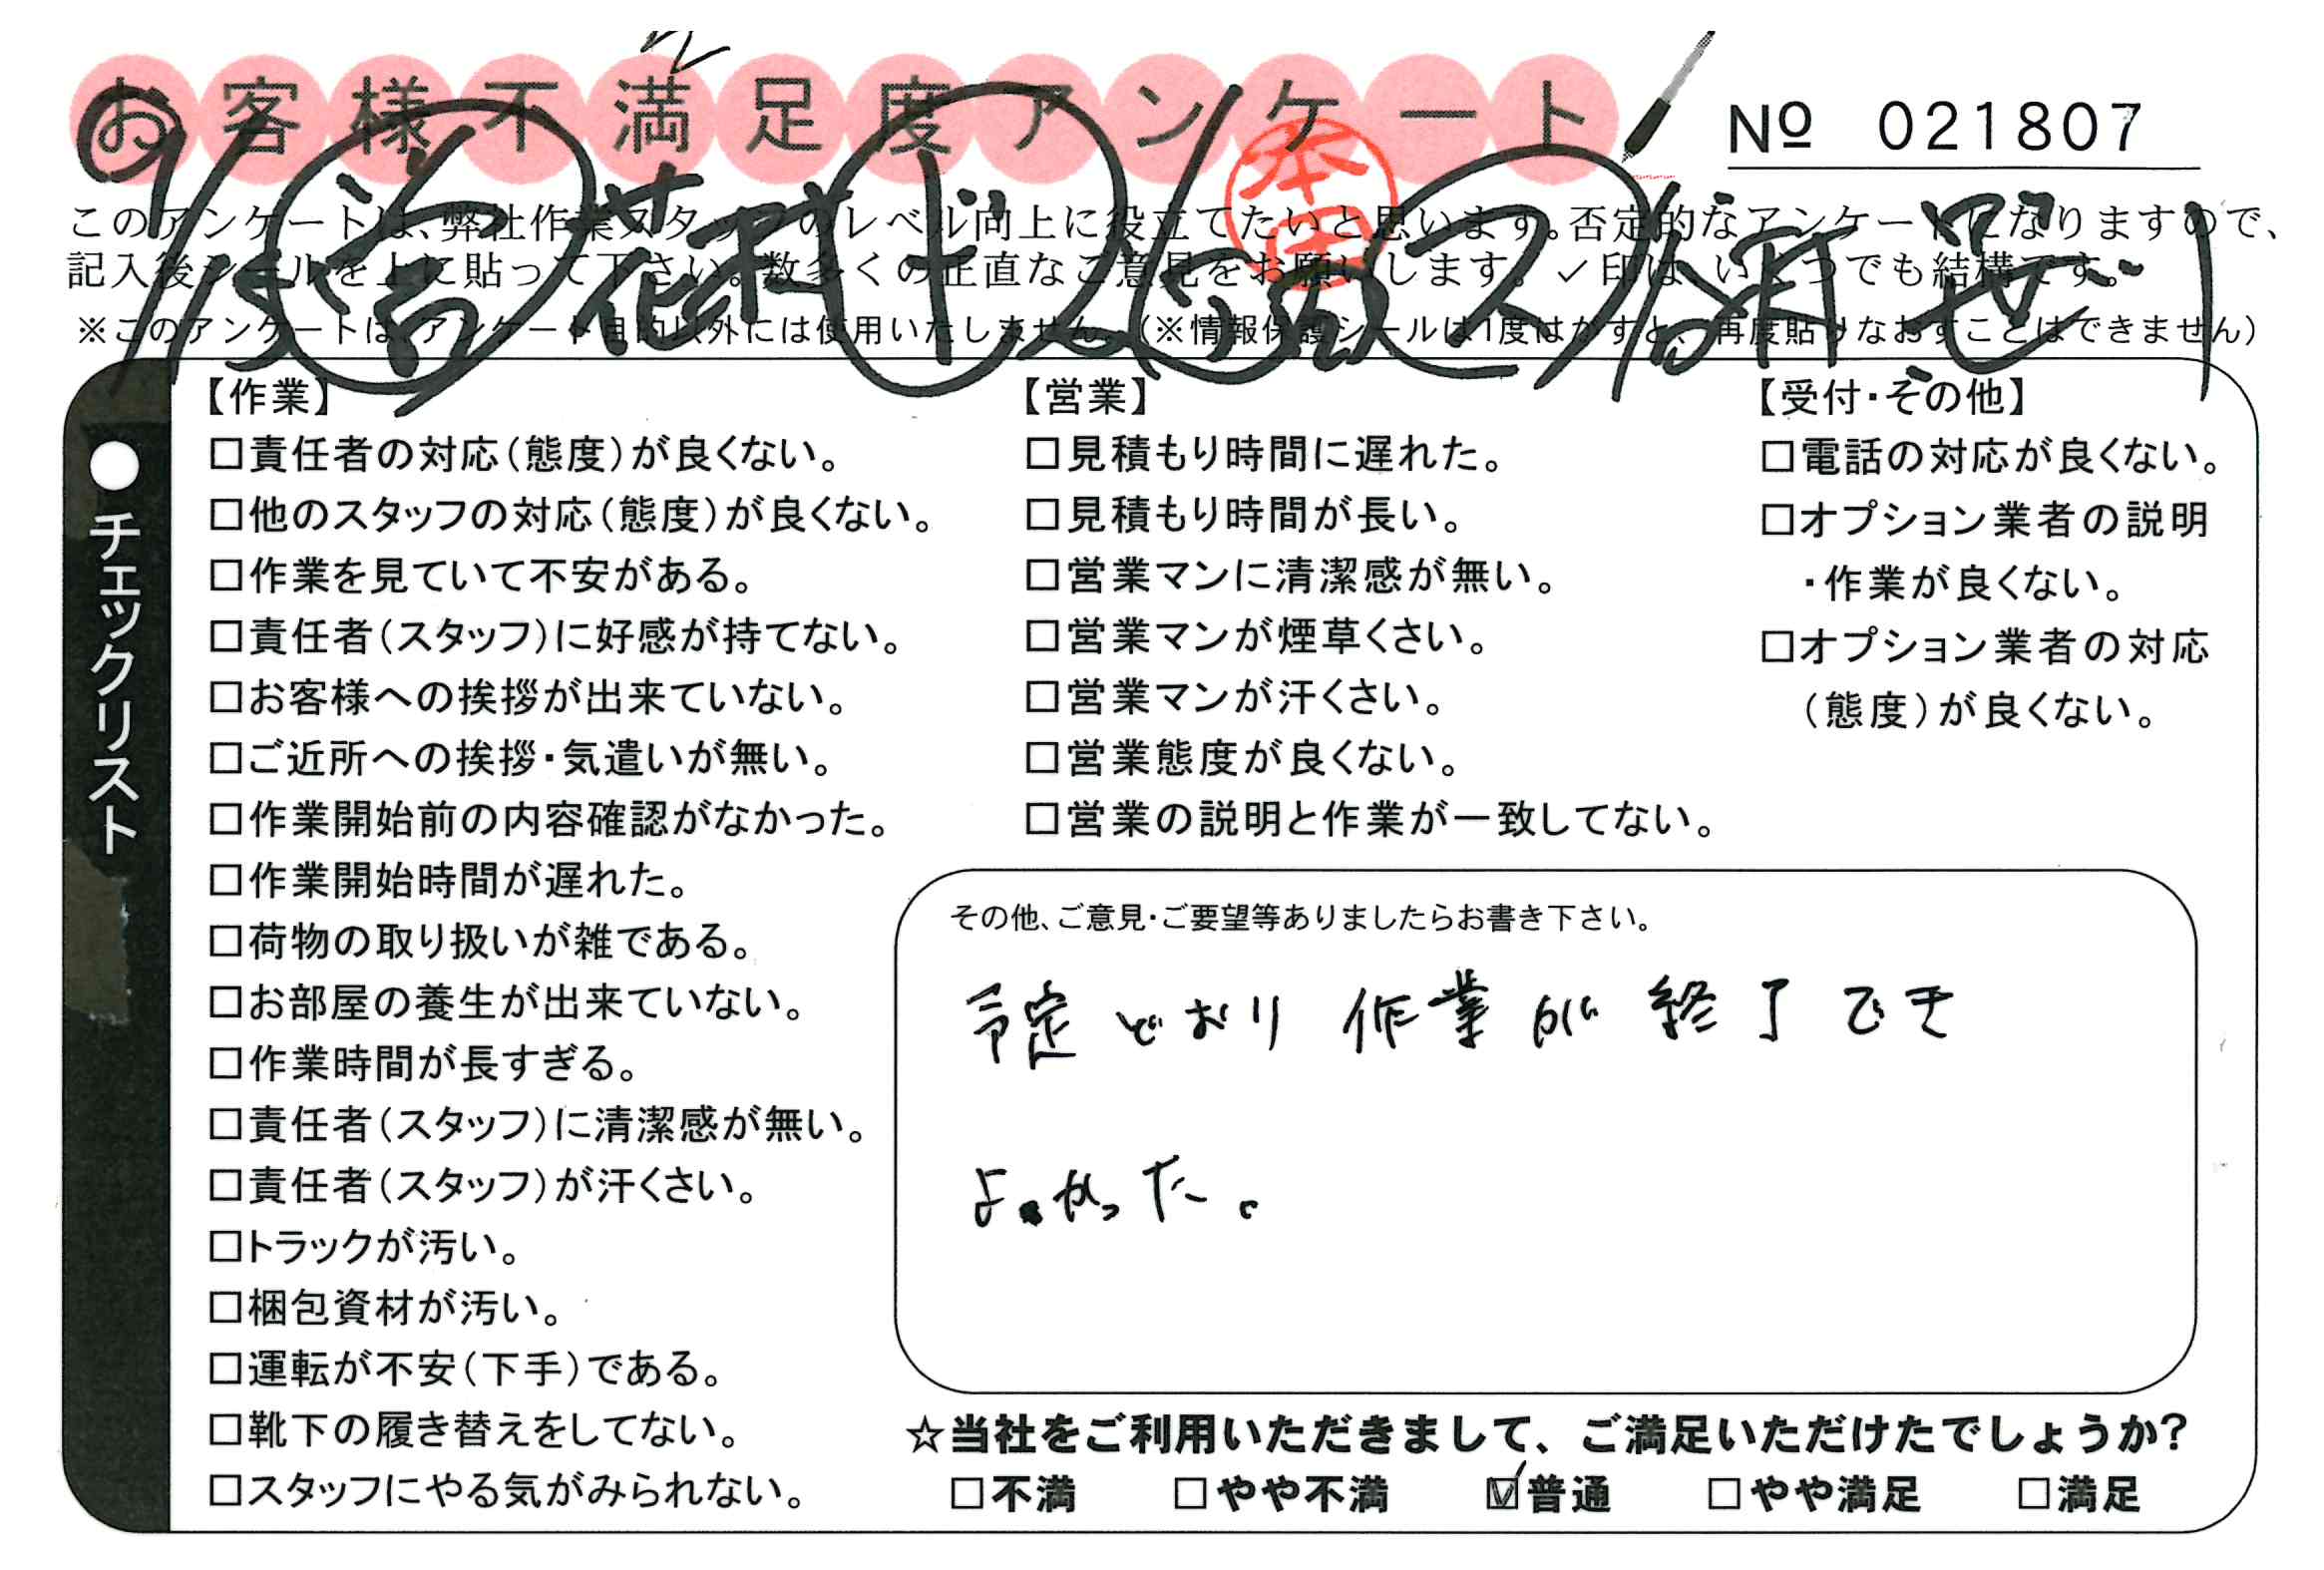 お客様不満足度アンケート
№ 021807
このアンケートは、弊社作業スタッフのレベル向上に役立てたいと思います。否定的なアンケートになりますので、
記入後シールを上に貼って下さい。数多くの正直なご意見をお願いします。✓印は いくつでも結構です。
※このアンケートは、アンケート目的以外には使用いたしません。(※情報保護シールは1度はがすと、再度貼りなおすことはできません)
本田
●チェックリスト
【作業】
□責任者の対応(態度)が良くない。
□他のスタッフの対応(態度)が良くない。
□作業を見ていて不安がある。
□責任者(スタッフ)に好感が持てない。
□お客様への挨拶が出来ていない。
□ご近所への挨拶・気遣いが無い。
□作業開始前の内容確認がなかった。
□作業開始時間が遅れた。
□荷物の取り扱いが雑である。
□お部屋の養生が出来ていない。
□作業時間が長すぎる。
□責任者(スタッフ)に清潔感が無い。
□責任者(スタッフ)が汗くさい。
□トラックが汚い。
□梱包資材が汚い。
□運転が不安(下手)である。
□靴下の履き替えをしてない。
□スタッフにやる気がみられない。
【営業】
□見積もり時間に遅れた。
□見積もり時間が長い。
□営業マンに清潔感が無い。
□営業マンが煙草くさい。
□営業マンが汗くさい。
□営業態度が良くない。
□営業の説明と作業が一致してない。
【受付・その他】
□電話の対応が良くない。
□オプション業者の説明
・作業が良くない。
□オプション業者の対応
(態度)が良くない。
その他、ご意見・ご要望等ありましたらお書き下さい。
予定どおり 作業が 終了でき
よかった。
☆当社をご利用いただきまして、ご満足いただけたでしょうか?
□不満 □やや不満 ☑普通 □やや満足 □満足